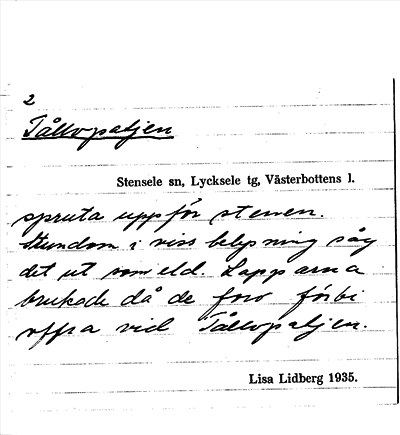 2
Tållvpaljen
Stensele sn, Lycksele tg, Västerbottens l.
spruta uppför stenen.
Stundom i viss belysning såg
det ut som eld. Lapparna
brukade då de foro förbi
offra vid Tållvpaljen.
Lisa Lidberg 1935.